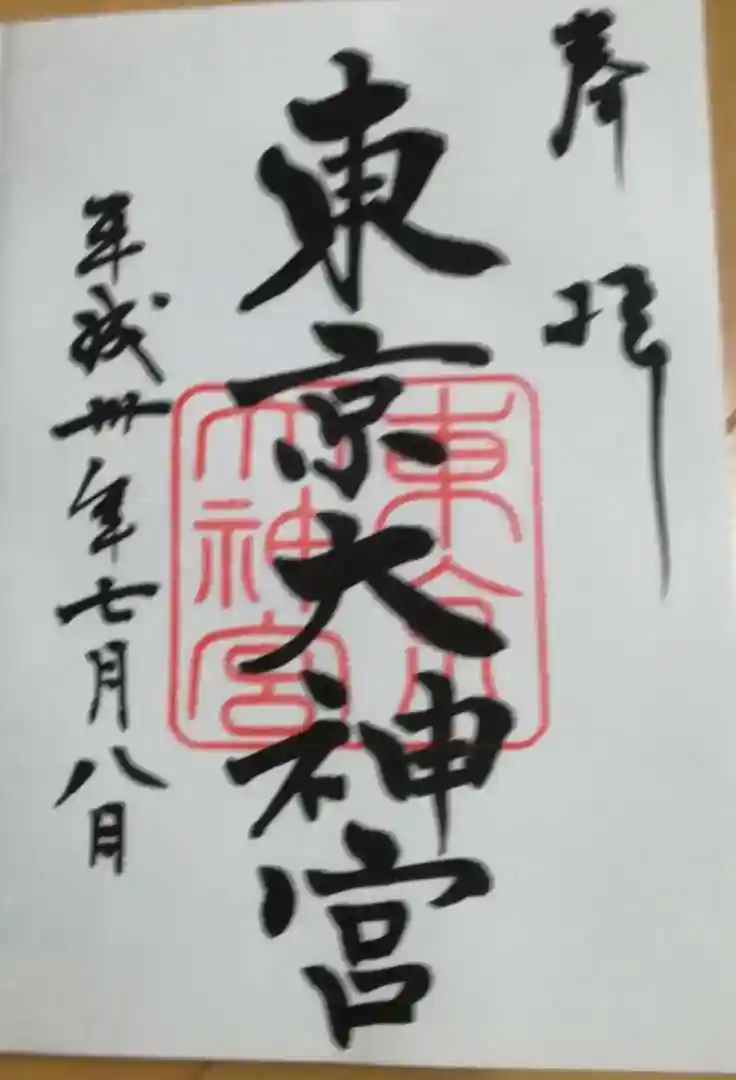 奉拝
東京大神宮
東京大神宮
平成卅年七月八日